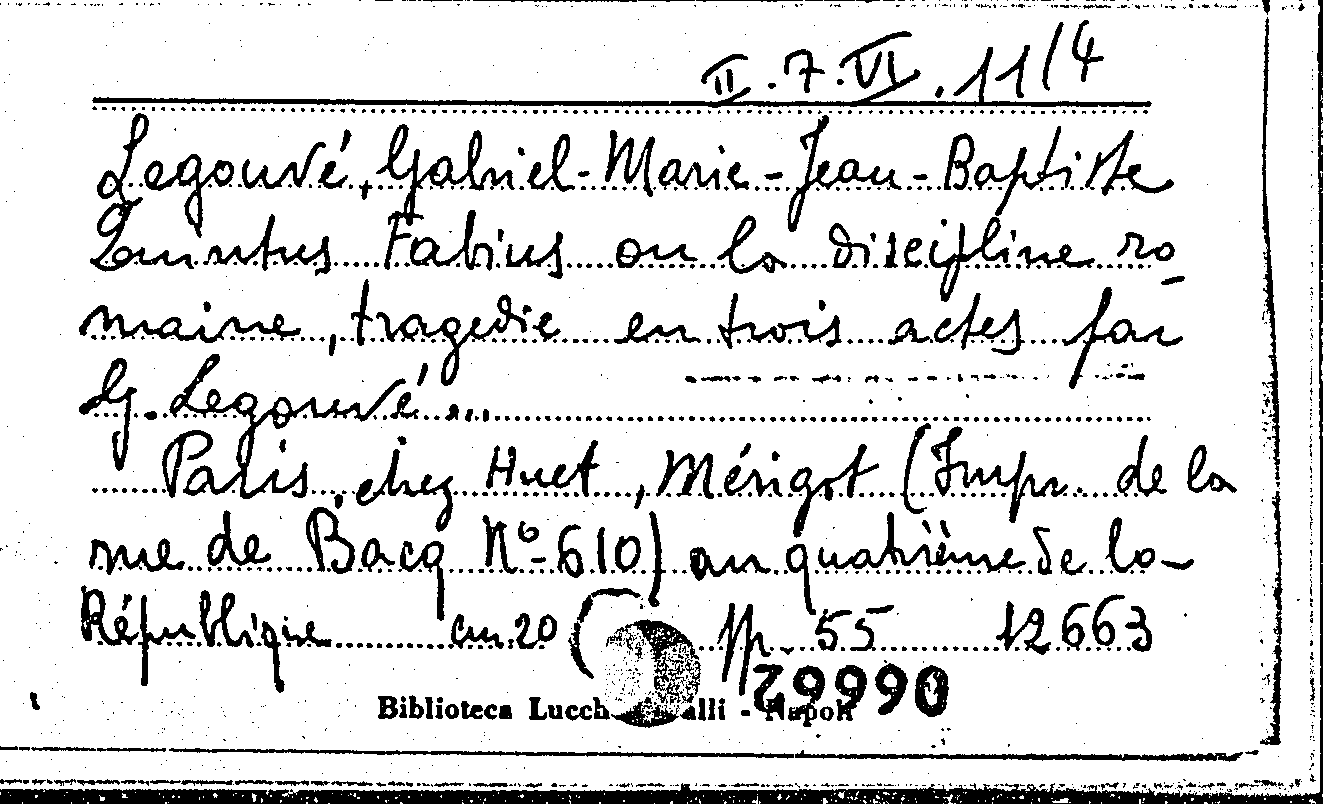 II.7.VI.11/4
Legouvé, Gabriel-Marie-Jean-Baptiste
Quintus Fabius ou la discipline ro-
maine, tragedie en trois actes par
G. Legouvé...
Paris, chez Huet, Mérigot (Impr. de la
rue de Bacq N°-610) an quatrième de la
République cm 20 ( pp. 55 12663
Biblioteca Lucch alli - Napoli